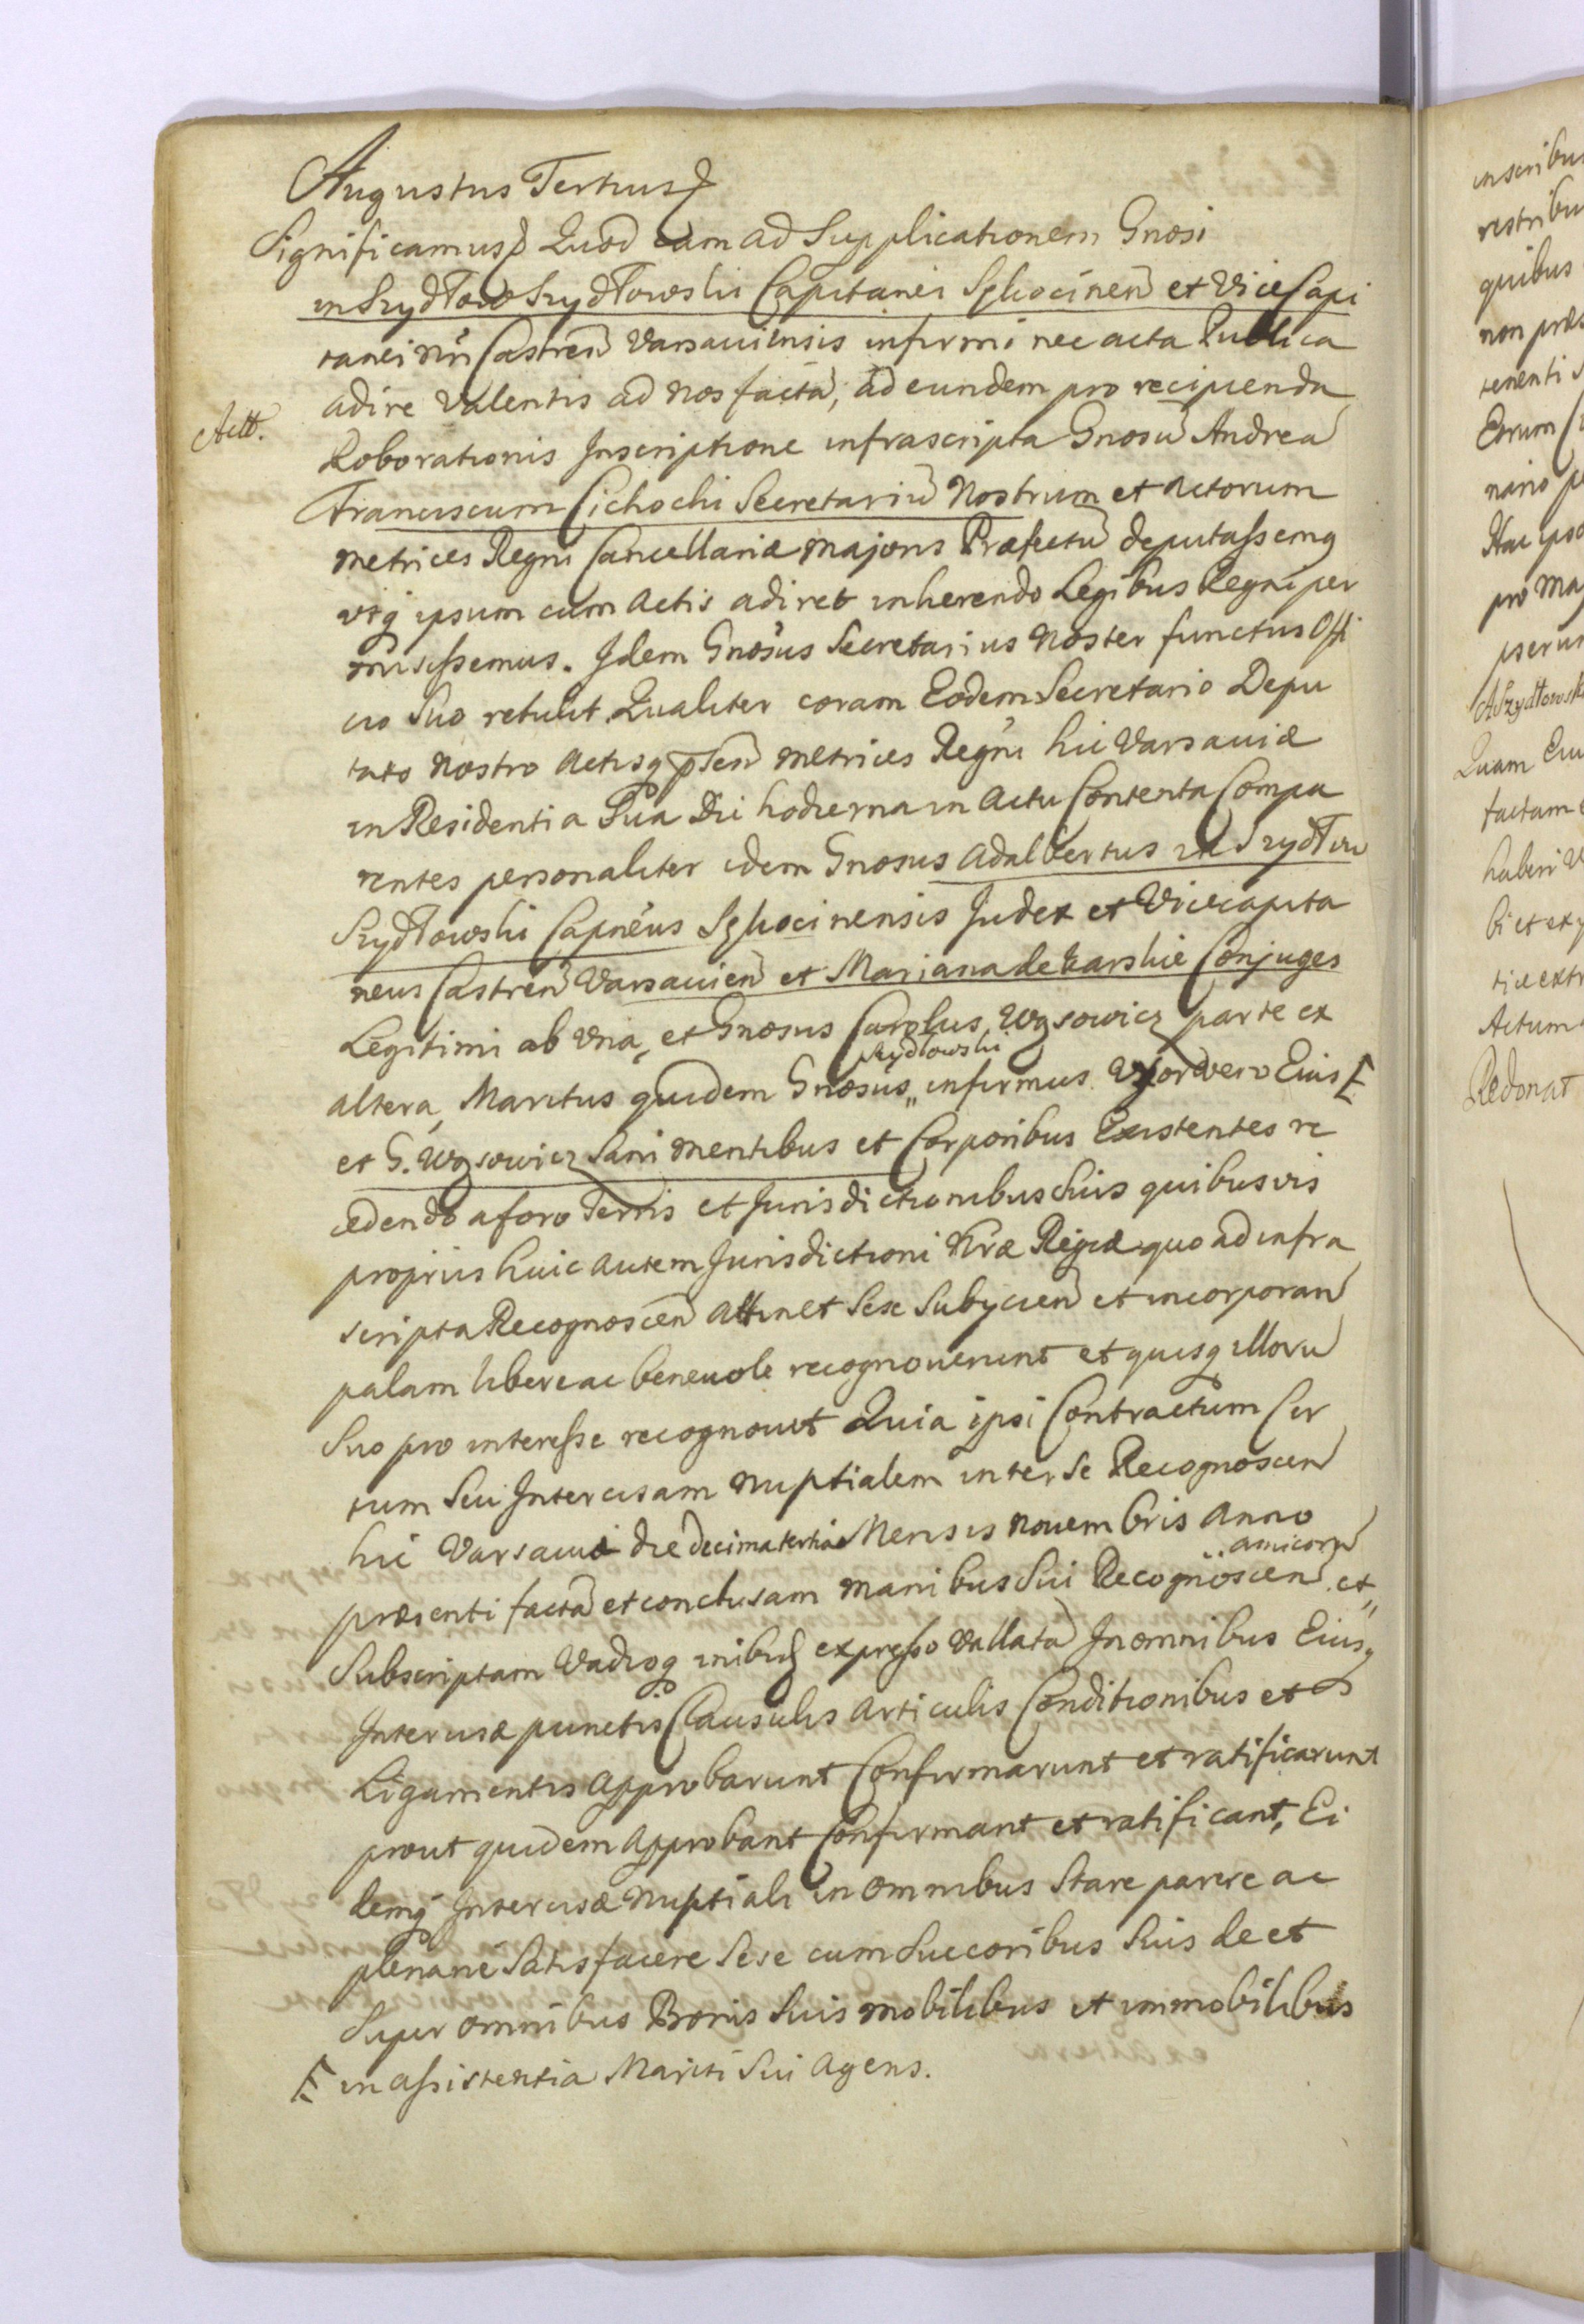 Augustus Tertius
Significamus Quod cum ad Supplicationem Gnosi
in Szydłow Szydłowski Capitanei Sghocinen et ViceCapi
tanei Nri Castren Varsaviensis infirmi nec acta Publica
adire Valentis ad Nos factã, ad eundem pro recipienda
Actt.
Roborationis Inscriptione infrascripta Gnosũ Andreã
Franciscum Cichocki Secretariũ Nostrum et Actorum
Metrices Regni Cancellariæ Majoris Præfectũ deputassemq
vtq ipsum cum Actis adiret inherendo Legibus Regni per
misissemus. Idem Gnosus Secretarius Noster functus Offi
cio Suo retulit Qualiter coram Eodem Secretario Depu
tato Nostro Actisq pñten Metrices Regni hic Varsaviæ
in Residentia Sua Die hodierna in Actu Contenta Compa
rentes personaliter idem Gnosus Adalbertus in Szydłow
Szydłowski Capneus Sghocinensis Judex et Vicecapita
neus Castren Varsavien et Mariana de Karskie Conjuges
Legitimi ab Vna, et Gnosus Carolus Wąsowicz parte ex
Szydłowski
altera, Maritus quidem Gnosus,, infirmus Vxor vero Eius
et G. Wąsowicz Sani Mentibus et Corporibus Existentes re
cedendo a foro Terris et Jurisdictionibus Suis quibusvis
propriis huic autem Jurisdictioni Nræ Regiæ quo ad infra
scripta Recognoscen Attinet Sese Subycien et incorporan
palam libere ac benevole recognoverunt et quisq illorũ
Suo pro interesse recognovit Quia ipsi Contractum Cer
tum Seu Intercisam Nuptialem inter Se Recognoscen
hic Varsaviæ die decimatertia Mensis Novembris Anno
amicorũ
præsenti factã et conclusam Manibus Sui Recognoscen et,,
Subscriptam Vadioq inibi expresso Vallatã In omnibus Eiusq
Intercisæ punctis Clausulis Articulis Conditionibus et
Ligamentis Approbarunt Confirmarunt et ratificarunt
prout quidem Approbant Confirmant et ratificant, Ei
demq Intercisæ Nuptiali in Omnibus Stare parere ac
plenarie Satisfacere Sese cum Succoribus Suis de et
Super omnibus Bonis Suis mobilibus et immobilibus
in assistentia Mariti Sui Agens.
inscribu
restribu
quibus
non præs
tenenti
Eorum
nario
Hac ipso
pro Maj
pserun
ASzydłowsk
Quam
factam
haberi
bi et ex
tie extr
Actum
Redonat